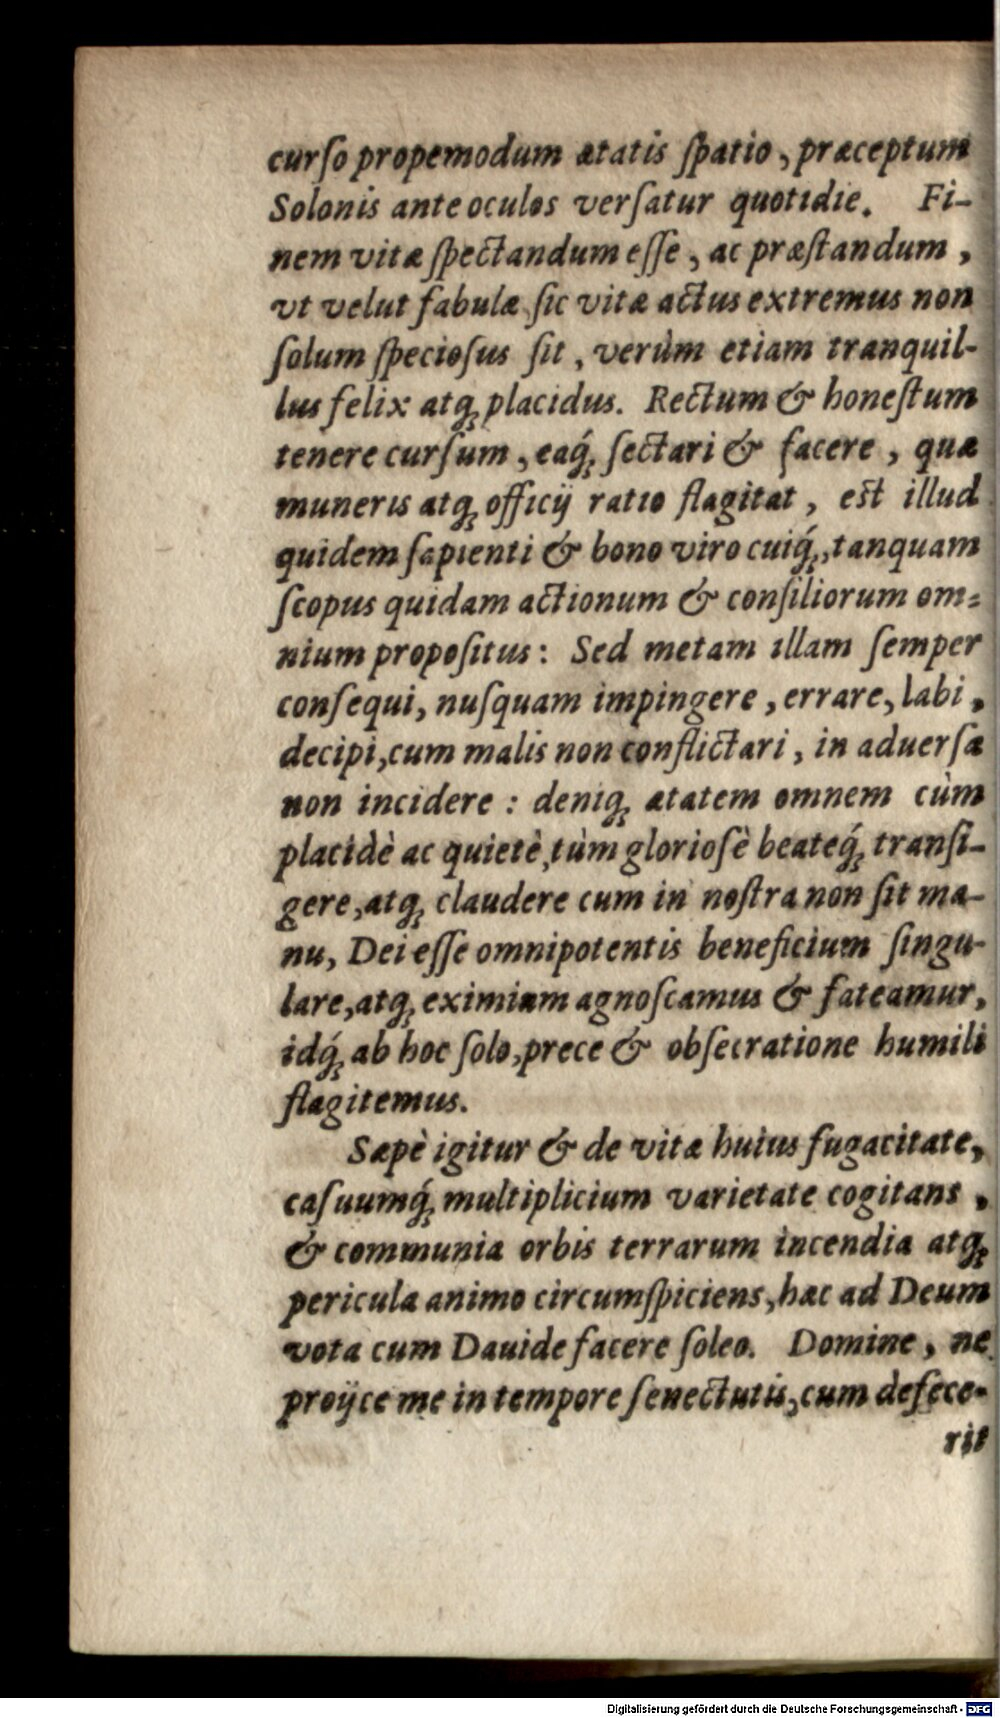 curſo propemodum ætatis ſpatio, præceptum
Solonis ante oculos verſatur quotidie. Fi-
nem vitæ ſpectandum eſſe, ac præſtandum,
vt velut fabulæ ſic vitæ actus extremus non
ſolum ſpecioſus ſit, verùm etiam tranquil-
lus felix atq; placidus. Rectum & honeſtum
tenere curſum, eaq́; ſectari & facere, quæ
muneris atq; officij ratio flagitat, est illud
quidem ſapienti & bono viro cuiq́;, tanquam
ſcopus quidam actionum & conſiliorum om=
nium propoſitus: Sed metam illam ſemper
conſequi, nuſquam impingere, errare, labi,
decipi, cum malis non conflictari, in aduerſa
non incidere: deniq; ætatem omnem cùm
placidè ac quietè, tùm glorioſè beateq́; tranſi-
gere, atq; claudere cum in noſtra non ſit ma-
nu, Dei eſſe omnipotentis beneficium ſingu-
lare, atq; eximiam agnoſcamus & fateamur,
idq́; ab hoc ſolo, prece & obſecratione humili
flagitemus.
Sæpè igitur & de vitæ huius fugacitate,
caſuumq́; multiplicium varietate cogitans,
& communia orbis terrarum incendia atq;
pericula animo circumſpiciens, hæc ad Deum
vota cum Dauide facere ſoleo. Domine, ne
proijce me in tempore ſenectutis, cum defece-
rit
Digitalisierung gefördert durch die Deutsche Forschungsgemeinschaft - DFG